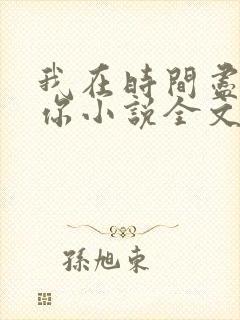 我在時間盡
你小說全文
孫旭東